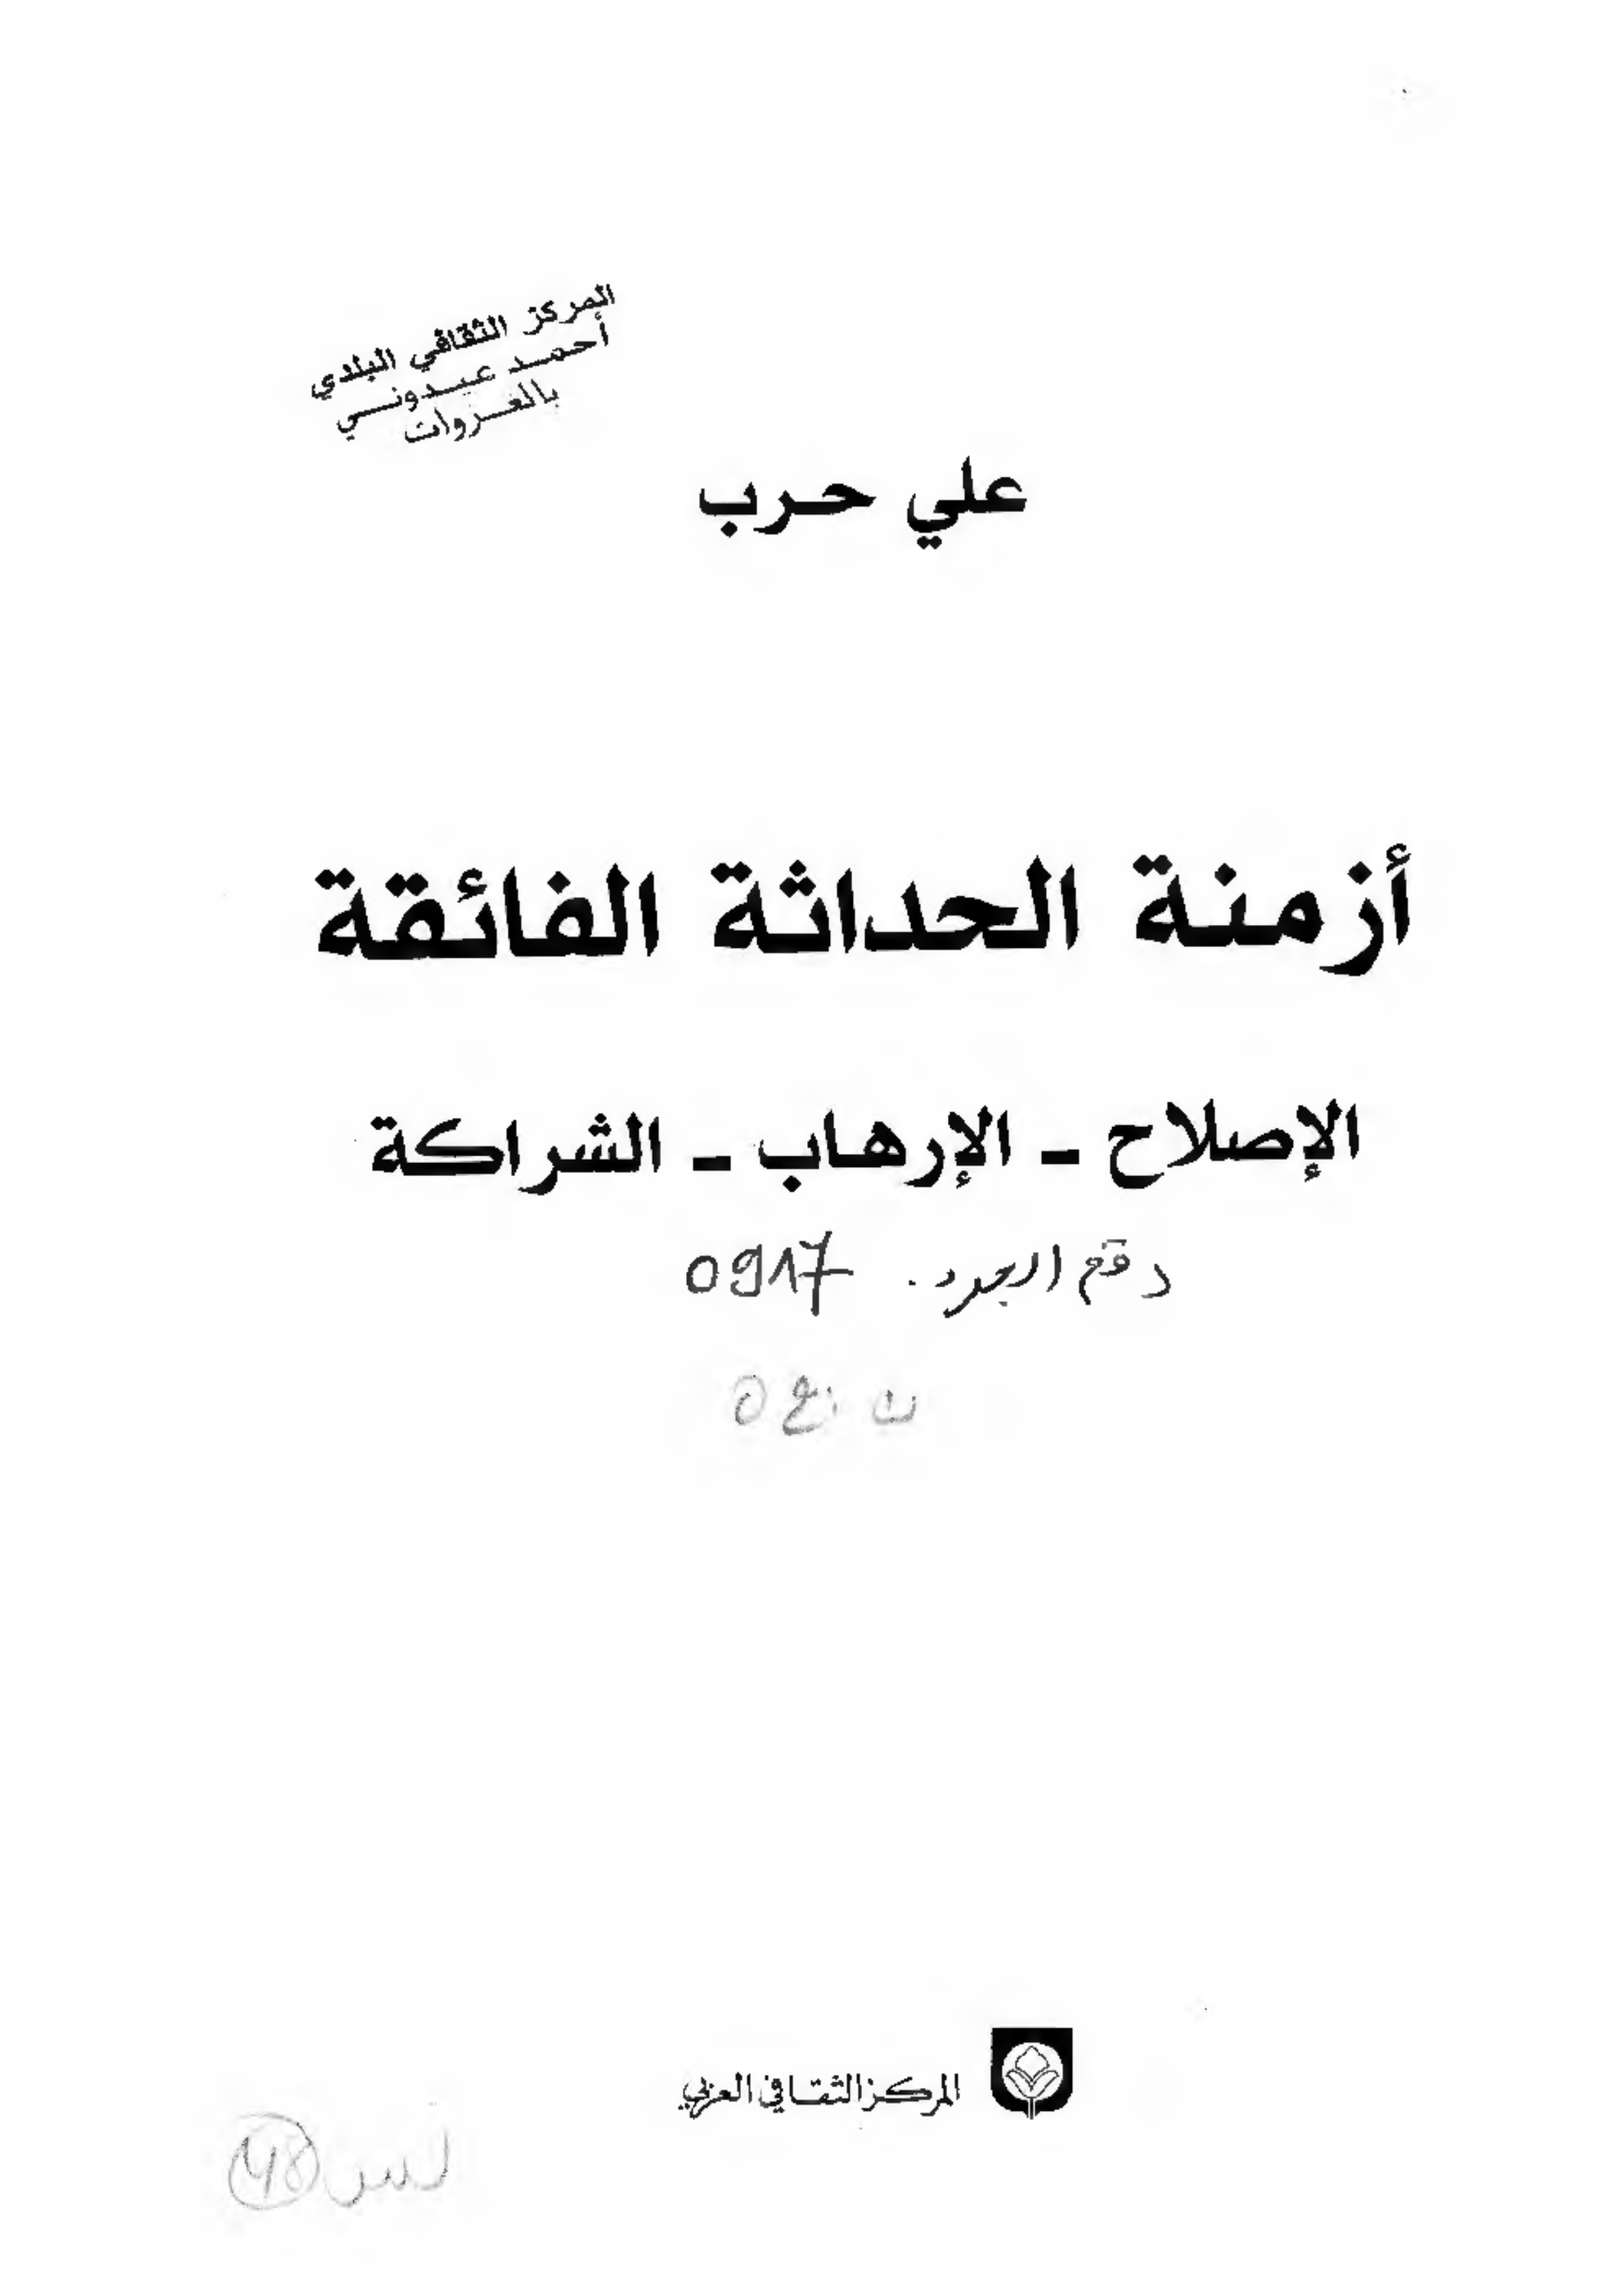 المركز الثقافي البلدي
أحمد عبدوني
بالغزوات
علي حرب
أزمنة الحداثة الفائقة
الإصلاح - الإرهاب - الشراكة
رقم الجرد. 0917
المركز الثقافي العربي